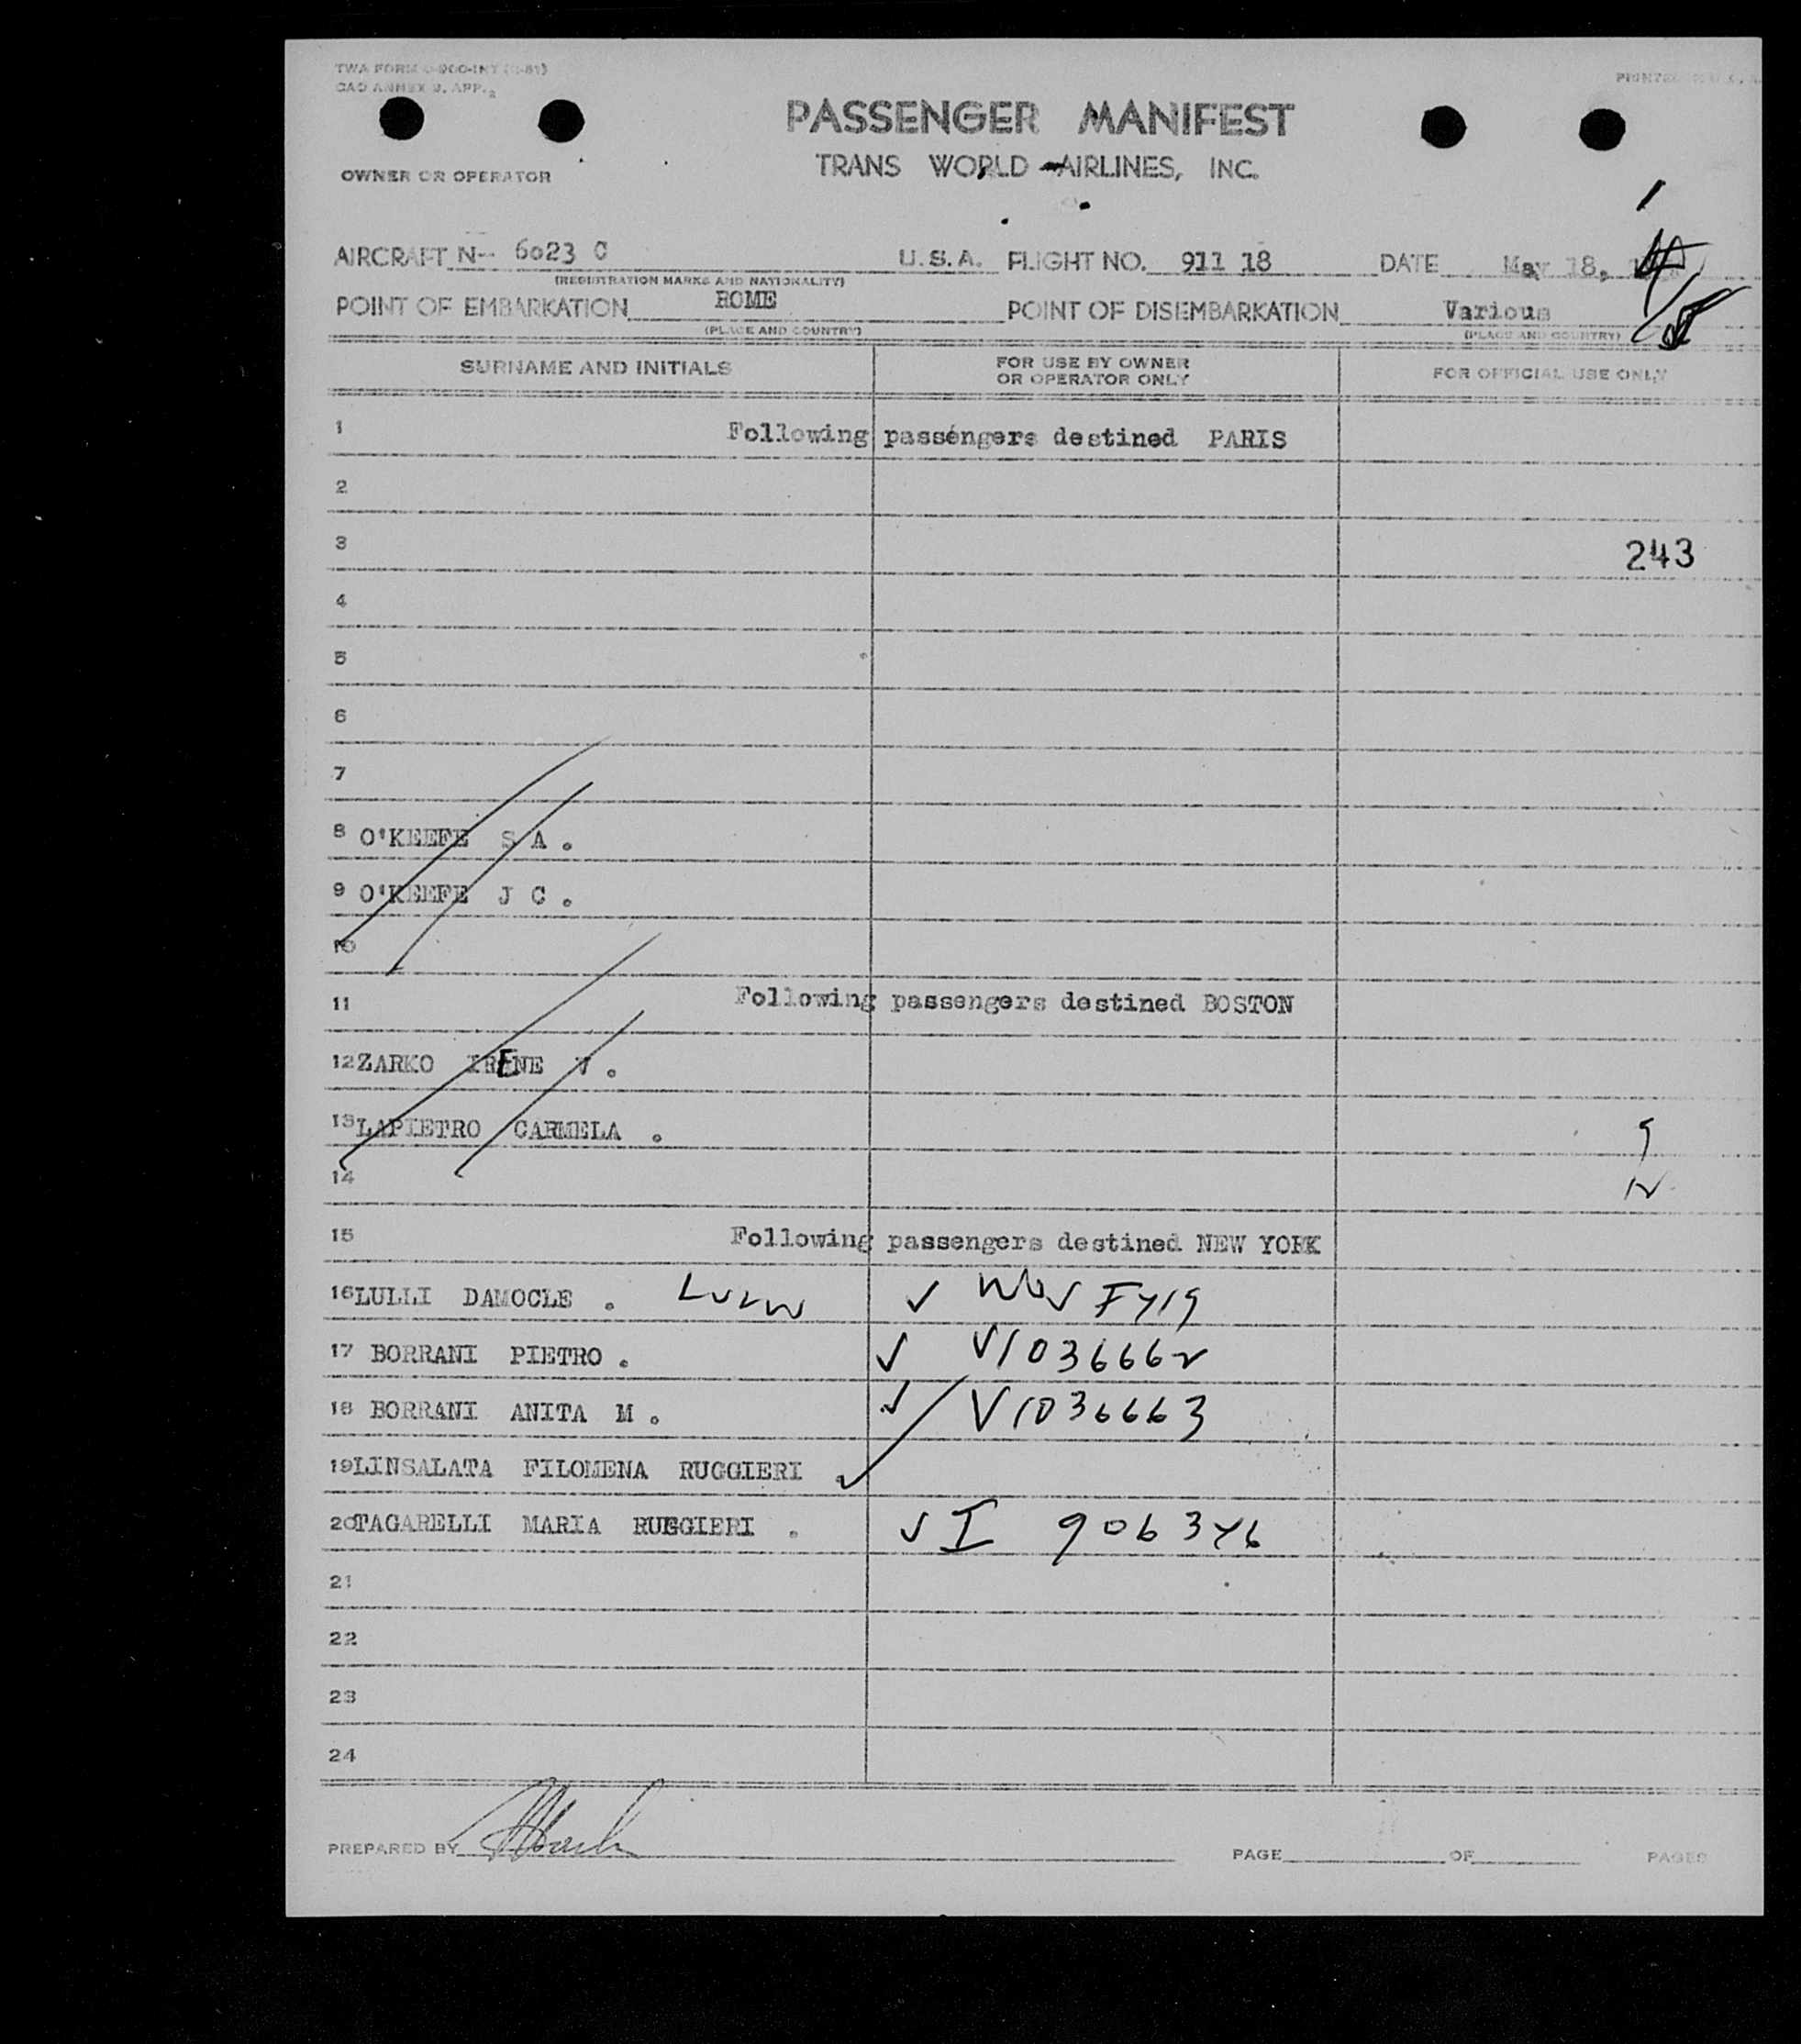 TWA FORM
CAO ANNEX 9. APP. 2
PRINTED
PASSENGER MANIFEST
TRANS WORLD AIRLINES, INC.
OWNER OR OPERATOR
AIRCRAFT N-- 6023 C U.S.A. FLIGHT NO. 911 18 DATE May 18,
(REGISTRATION MARKS AND NATIONALITY)
POINT OF EMBARKATION ROME POINT OF DISEMBARKATION Various
(PLACE AND COUNTRY) (PLACE AND COUNTRY)
SURNAME AND INITIALS FOR USE BY OWNER OR OPERATOR ONLY FOR OFFICIAL USE ONLY
1 Following passengers destined PARIS
2
3 243
4
5
6
7
8 O'KEEFE S A .
9 O'KEEFE J C .
10
11 Following passengers destined BOSTON
12 ZARKO IRENE V .
13 LAPIETRO CARMELA .
14
15 Following passengers destined NEW YORK
16 LULLI DAMOCLE .
17 BORRANI PIETRO . ✓ V1036662
18 BORRANI ANITA M . ✓ V1036663
19 LINSALATA FILOMENA RUGGIERI
20 TAGARELLI MARIA RUGGIERI . ✓ I 906346
21
22
23
24
PREPARED BY PAGE OF PAGES